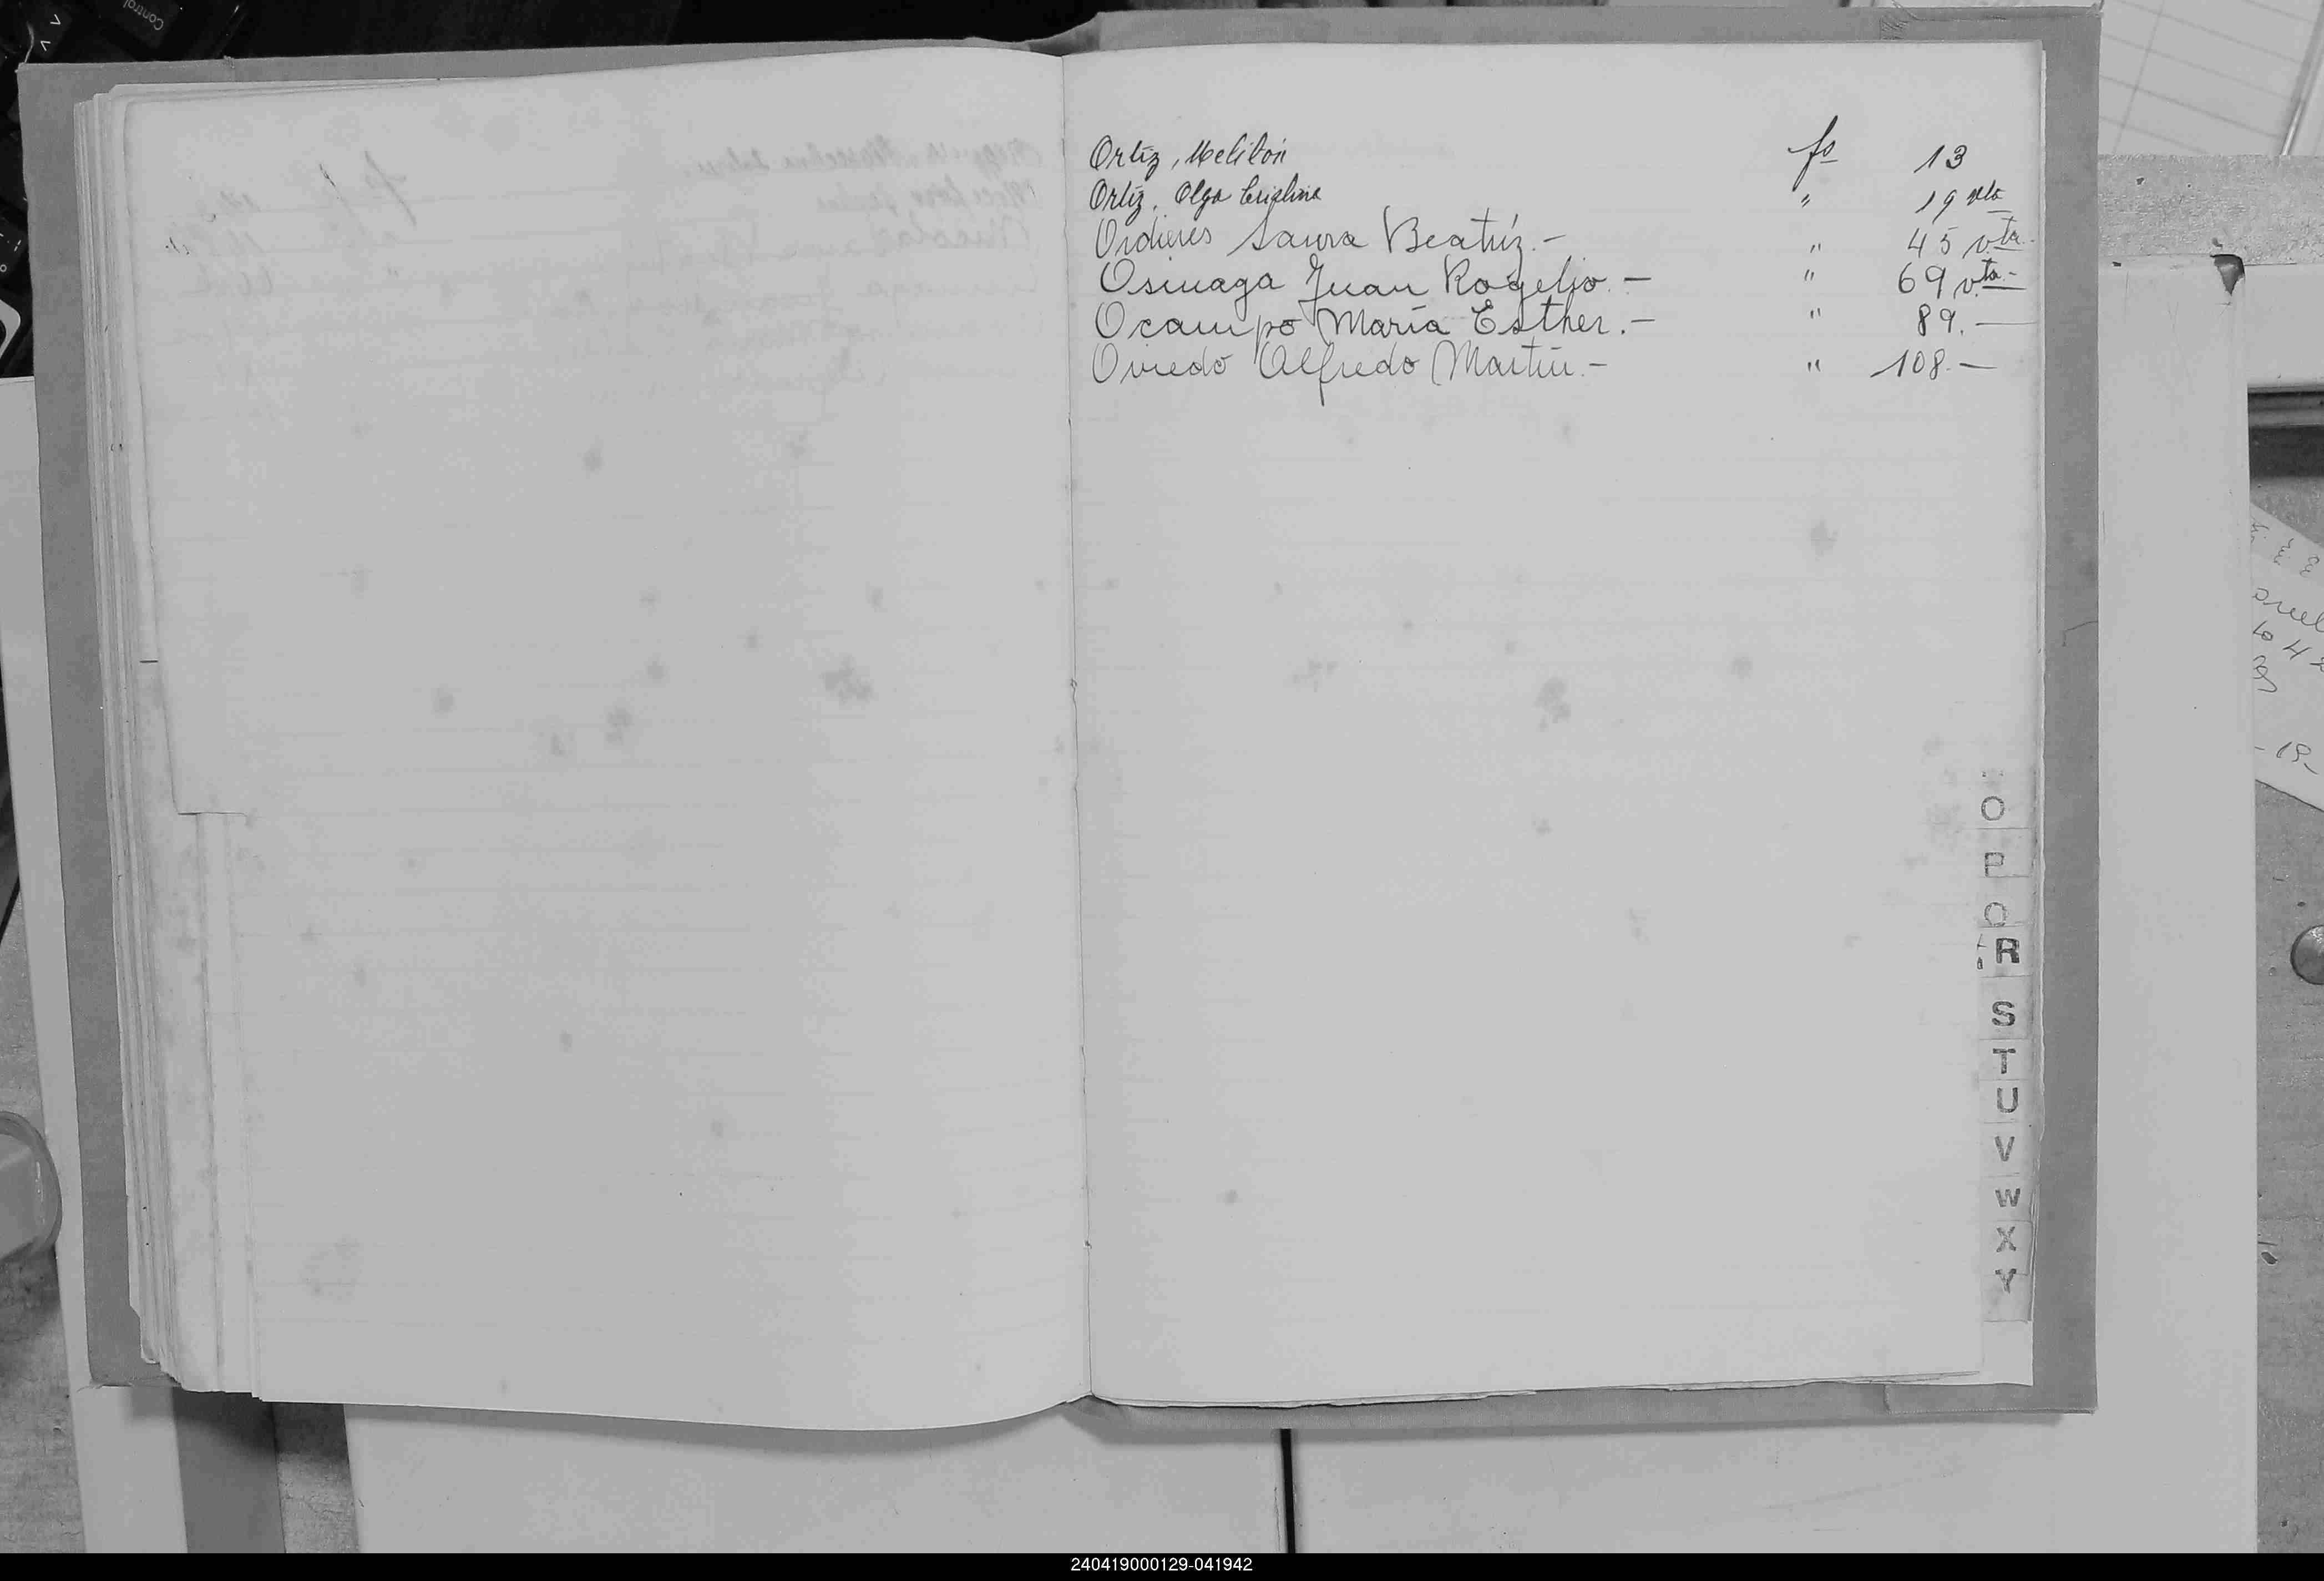 Ortiz, Melitón fs 13
Ortiz, Olga Cristina " 19 vta
Ordieres Laura Beatríz.- " 45 vta.-
Osinaga Juan Rogelio.- " 69 vta.-
Ocampo María Esther.- " 89.-
Oviedo Alfredo Martín.- " 108.-
O
P
Q
R
S
T
U
V
W
X
Y
Control
240419000129-041942